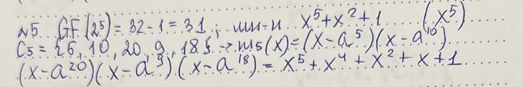 N5 GF(2⁵) = 32 - 1 = 31; мин-н x⁵ + x² + 1 (x⁵)
C5 = {5, 10, 20, 9, 18} → m5(x) = (x - a⁵)(x - a¹⁰)
(x - a²⁰)(x - a⁹)(x - a¹⁸) = x⁵ + x⁴ + x² + x + 1